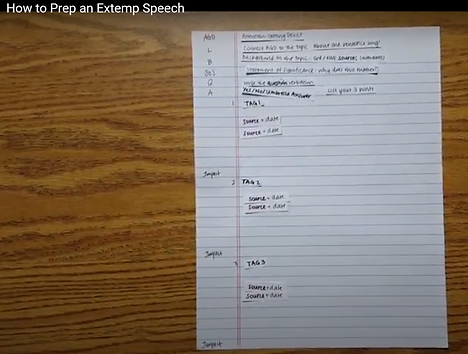 How to Prep an Extemp Speech
AGD Attention Getting Device
L Connect AGD to the topic. About one sentence long!
B Background to the topic. source:
SOS Statement of Significance: why does this matter?
Q verbatim
A Yes/No/Umbrella Answer List your 3 points
1 TAG1
Source + date
Source + date
Impact
2 TAG2
Source + date
Source + date
Impact
3 TAG3
Source + date
Source + date
Impact